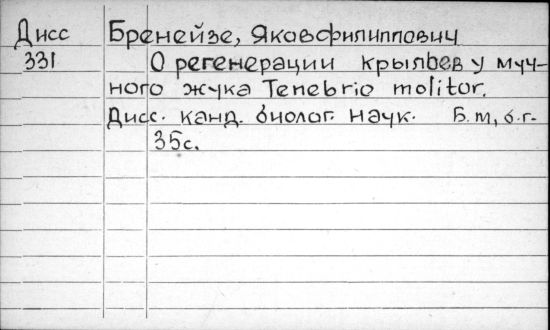 Дисс Бренейзе, Яковфилиппович
331 О регенерации крыльев у муч-
ного жука Tenebrio molitor.
Дисс. канд. биолог. наук. Б.м, б.г.
35с.